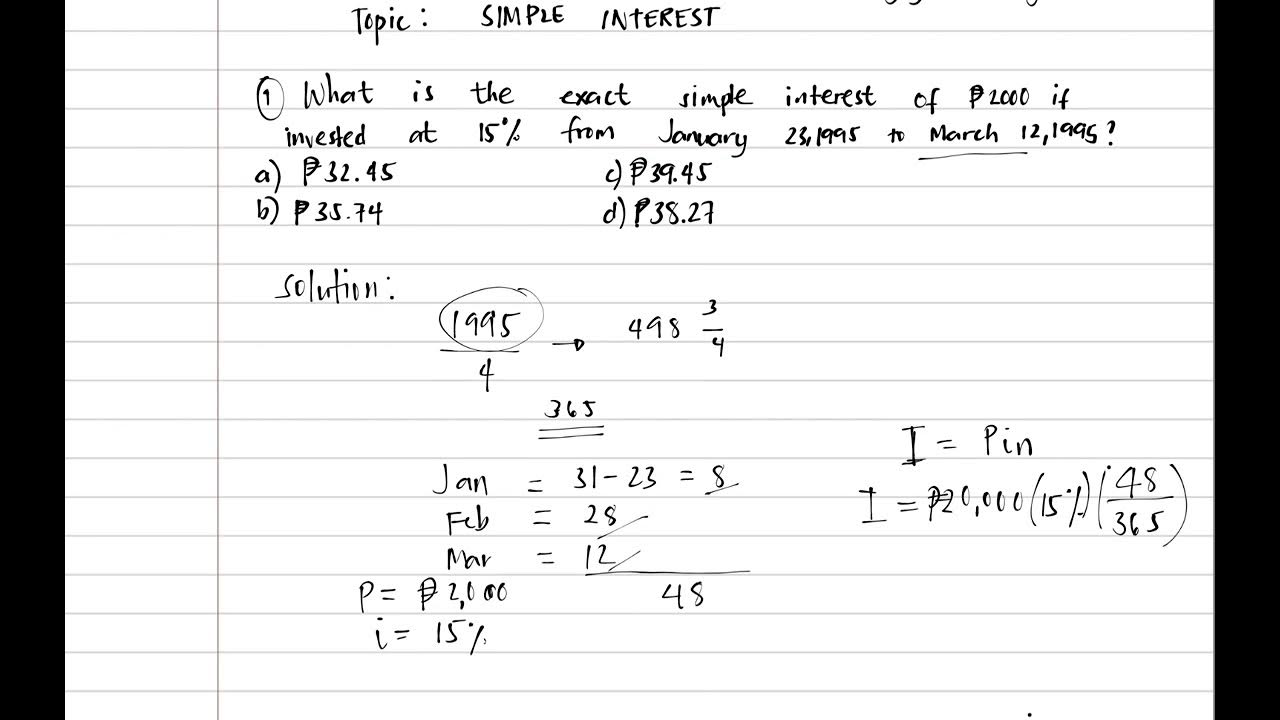 Topic: SIMPLE INTEREST
① What is the exact simple interest of ₱2000 if
invested at 15% from January 23,1995 to March 12,1995?
a) ₱32.45 c) ₱39.45
b) ₱35.74 d) ₱38.27
Solution:
1995/4 → 498 3/4
365
Jan = 31-23 = 8
Feb = 28
Mar = 12
48
P = ₱2,000
i = 15%
I = Pin
I = ₱20,000 (15%) (48/365)